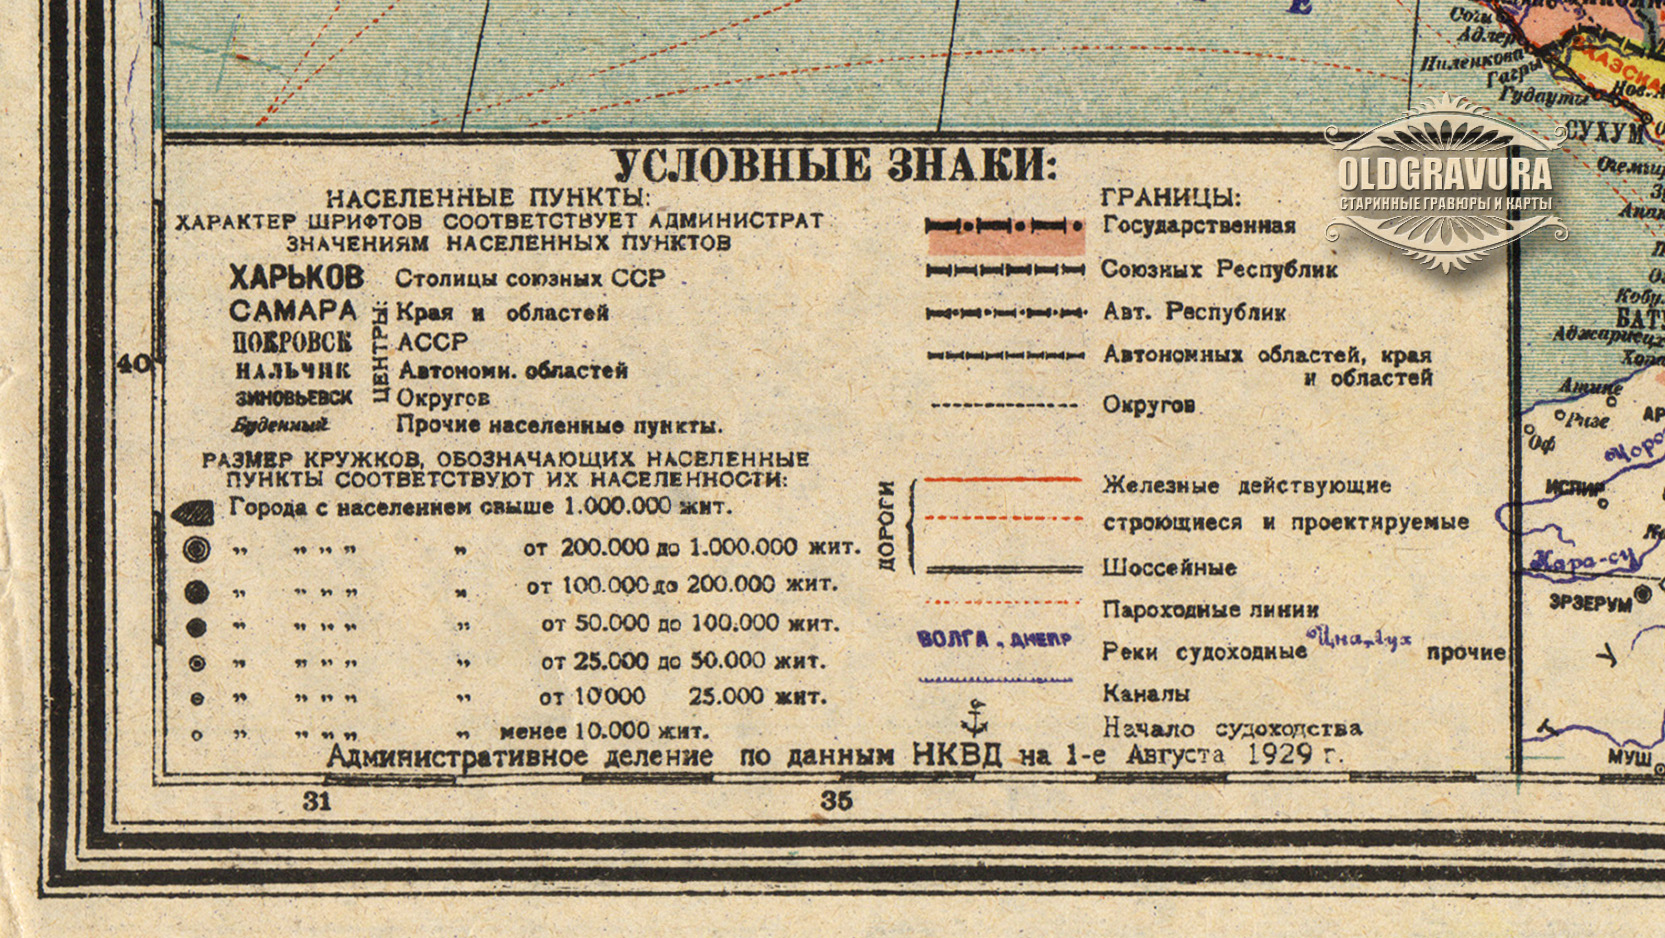 Е
Сочи
Адлер
Пиленкова
Гагры
Гудауты
Нов. А
СУХУМ
OLDGRAVURA
СТАРИННЫЕ ГРАВЮРЫ И КАРТЫ
УСЛОВНЫЕ ЗНАКИ:
НАСЕЛЕННЫЕ ПУНКТЫ:
ХАРАКТЕР ШРИФТОВ СООТВЕТСТВУЕТ АДМИНИСТРАТ
ЗНАЧЕНИЯМ НАСЕЛЕННЫХ ПУНКТОВ
ХАРЬКОВ Столицы союзных ССР
САМАРА Края и областей
ПОКРОВСК АССР
НАЛЬЧИК Автономн. областей
ЗИНОВЬЕВСК Округов
ЦЕНТРЫ:
Буденный Прочие населенные пункты.
РАЗМЕР КРУЖКОВ, ОБОЗНАЧАЮЩИХ НАСЕЛЕННЫЕ
ПУНКТЫ СООТВЕТСТВУЮТ ИХ НАСЕЛЕННОСТИ:
Города с населением свыше 1.000.000 жит.
„ „ „ „ „ от 200.000 до 1.000.000 жит.
„ „ „ „ „ от 100.000 до 200.000 жит.
„ „ „ „ „ от 50.000 до 100.000 жит.
„ „ „ „ „ от 25.000 до 50.000 жит.
„ „ „ „ „ от 10'000 25.000 жит.
„ „ „ „ „ менее 10.000 жит.
ГРАНИЦЫ:
Государственная
Союзных Республик
Авт. Республик
Автономных областей, края
и областей
Округов
ДОРОГИ
Железные действующие
строющиеся и проектируемые
Шоссейные
Пароходные линии
ВОЛГА, ДНЕПР Реки судоходные Цна, Лух прочие
Каналы
Начало судоходства
Административное деление по данным НКВД на 1-е Августа 1929 г.
40
31
35
Атине
Ризе
Оф
ИСПИР
Кара-су
ЭРЗЕРУМ
МУШ